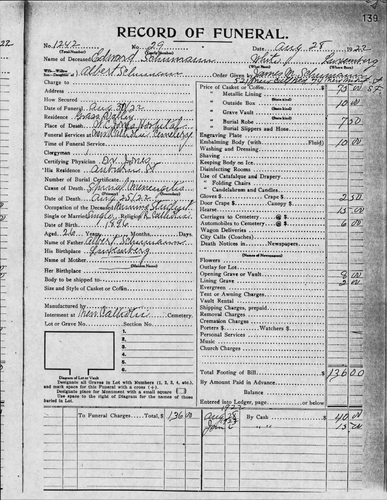 139
RECORD OF FUNERAL.
No. 1242 No. 29 Date, Aug 28 1922
(Yearly Number)
Name of Deceased Edward Schumann White Luxemburg
(What Race) (Where Born)
Albert Schumann Order Given by James M. Schumann
Charge to
Address
How Secured
Date of Funeral Aug 30/22
Residence Grass Valley
Place of Death
Funeral Services at New Catholic Cemetery
Time of Funeral Service
Clergyman
Certifying Physician Dr. Jones
His Residence Auburn St
Number of Burial Certificate
Cause of Death Spinal Meningitis
Date of Death Aug 28/22
Occupation of the Deceased Mining Student
Single or Married Single Religion Catholic
Date of Birth 1896
Aged 26 Years, Months, Days.
Name of Father Albert Schumann
His Birthplace Luxemburg
Name of Mother
(Maiden Name)
Her Birthplace
Body to be shipped to
Size and Style of Casket or Coffin
Manufactured by
Interment at New Catholic Cemetery.
Lot or Grave No. Section No.
Diagram of Lot or Vault
Designate all Graves in Lot with Numbers (1, 2, 3, 4, etc.),
and mark space for this Funeral with a cross (+).
Designate place for Monument with a small square □
Use space to the right of Diagram for the names of those
buried in Lot.
To Funeral Charges Total, $ 136 00
Price of Casket or Coffin $ 75 00
" Metallic Lining
" Outside Box 10 00
" Grave Vault
" Burial Robe 7 50
" Burial Slippers and Hose
Engraving Plate
Embalming Body (with Fluid) 10 00
Washing and Dressing
Shaving
Keeping Body on Ice
Disinfecting Rooms
Use of Catafalque and Drapery
" Folding Chairs
" Candelabrum and Candles
Gloves $ Crape $ 2 50
Door Crape $ Canopy $
Hearse 15 00
Carriages to Cemetery @ $
Automobiles to Cemetery @ $ 6 00
Wagon Deliveries
City Calls (Coaches)
Death Notices in Newspapers
(Names of Newspapers)
Flowers
Outlay for Lot
Opening Grave or Vault 8 00
Lining Grave 2 00
Evergreen
Tent or Awning Charges
Vault Rental
Shipping Charges, prepaid
Removal Charges
Cremation Charges
Porters $ Watchers $
Personal Services
Music
Church Charges
Total Footing of Bill $ 136 00
By Amount Paid in Advance
Balance
Entered into Ledger, page or below
1922
Aug 28 By Cash 40 00
15 00